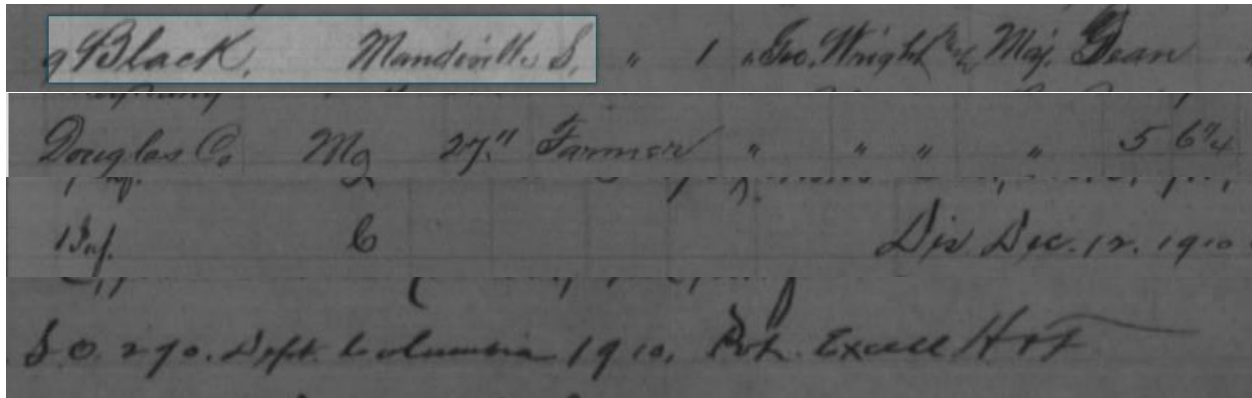 Black, Mandeville S. " 1 " Geo. Wright Maj. Dean
Douglas Co Mo 27 " Farmer " " " " 5 6 3/4
1 Inf. C Dis Dec. 12. 1910
S.O. 290. Dept. Columbia 1910. Pvt. Excell H & F